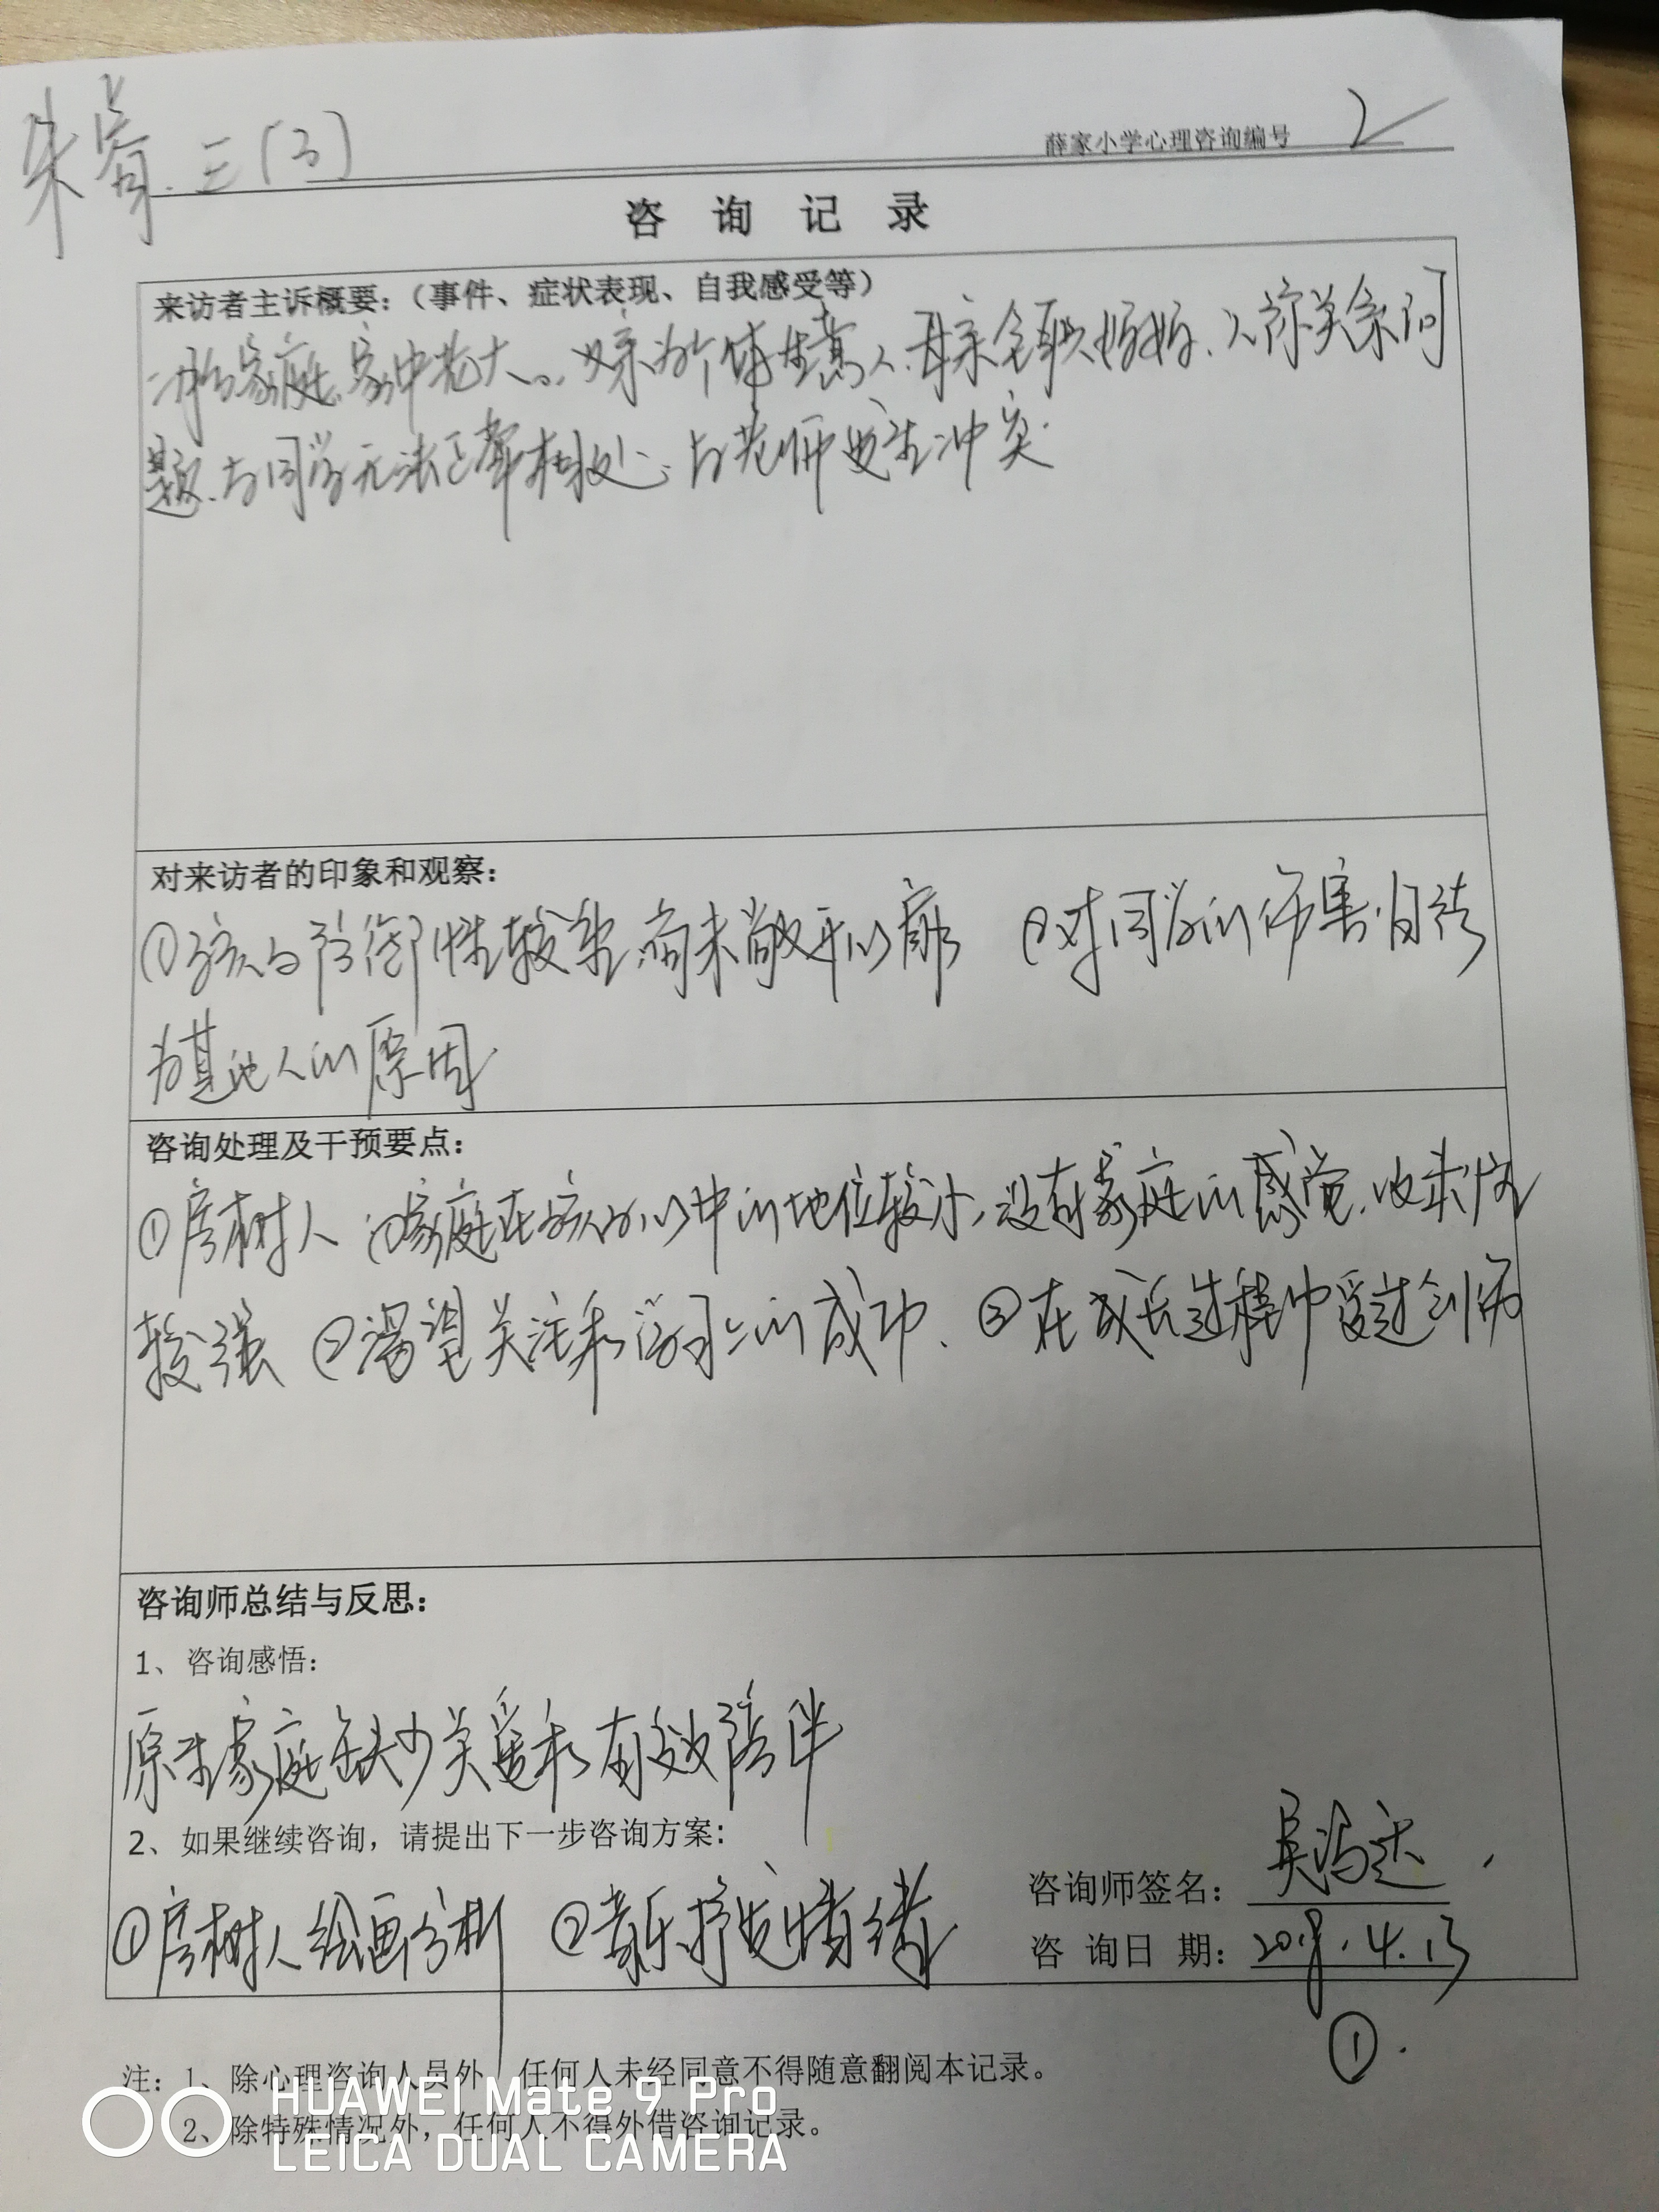 朱睿.三(3)
薛家小学心理咨询编号 2
咨 询 记 录
来访者主诉概要：（事件、症状表现、自我感受等）
家庭,家中老大。父亲为个体生意人,母亲全职妈妈、人际关系问
题、与同学无法正常相处、与老师发生冲突.
对来访者的印象和观察：
①孩子防御性较强,尚未敞开心扉 ②对同学的伤害,归结
为其他人的原因.
咨询处理及干预要点：
①房树人 ①家庭在孩子心中的地位较小,没有家庭的感觉,
较强 ②渴望关注和学习上的成功、③在成长过程中受过创伤
咨询师总结与反思：
1、咨询感悟：
原生家庭缺少关爱和有效陪伴
2、如果继续咨询，请提出下一步咨询方案：
①房树人绘画分析 ②音乐抒发情绪
咨询师签名：
咨 询日 期：2018.4.13
①.
注：1、除心理咨询人员外，任何人未经同意不得随意翻阅本记录。
2、除特殊情况外，任何人不得外借咨询记录。
HUAWEI Mate 9 Pro
LEICA DUAL CAMERA